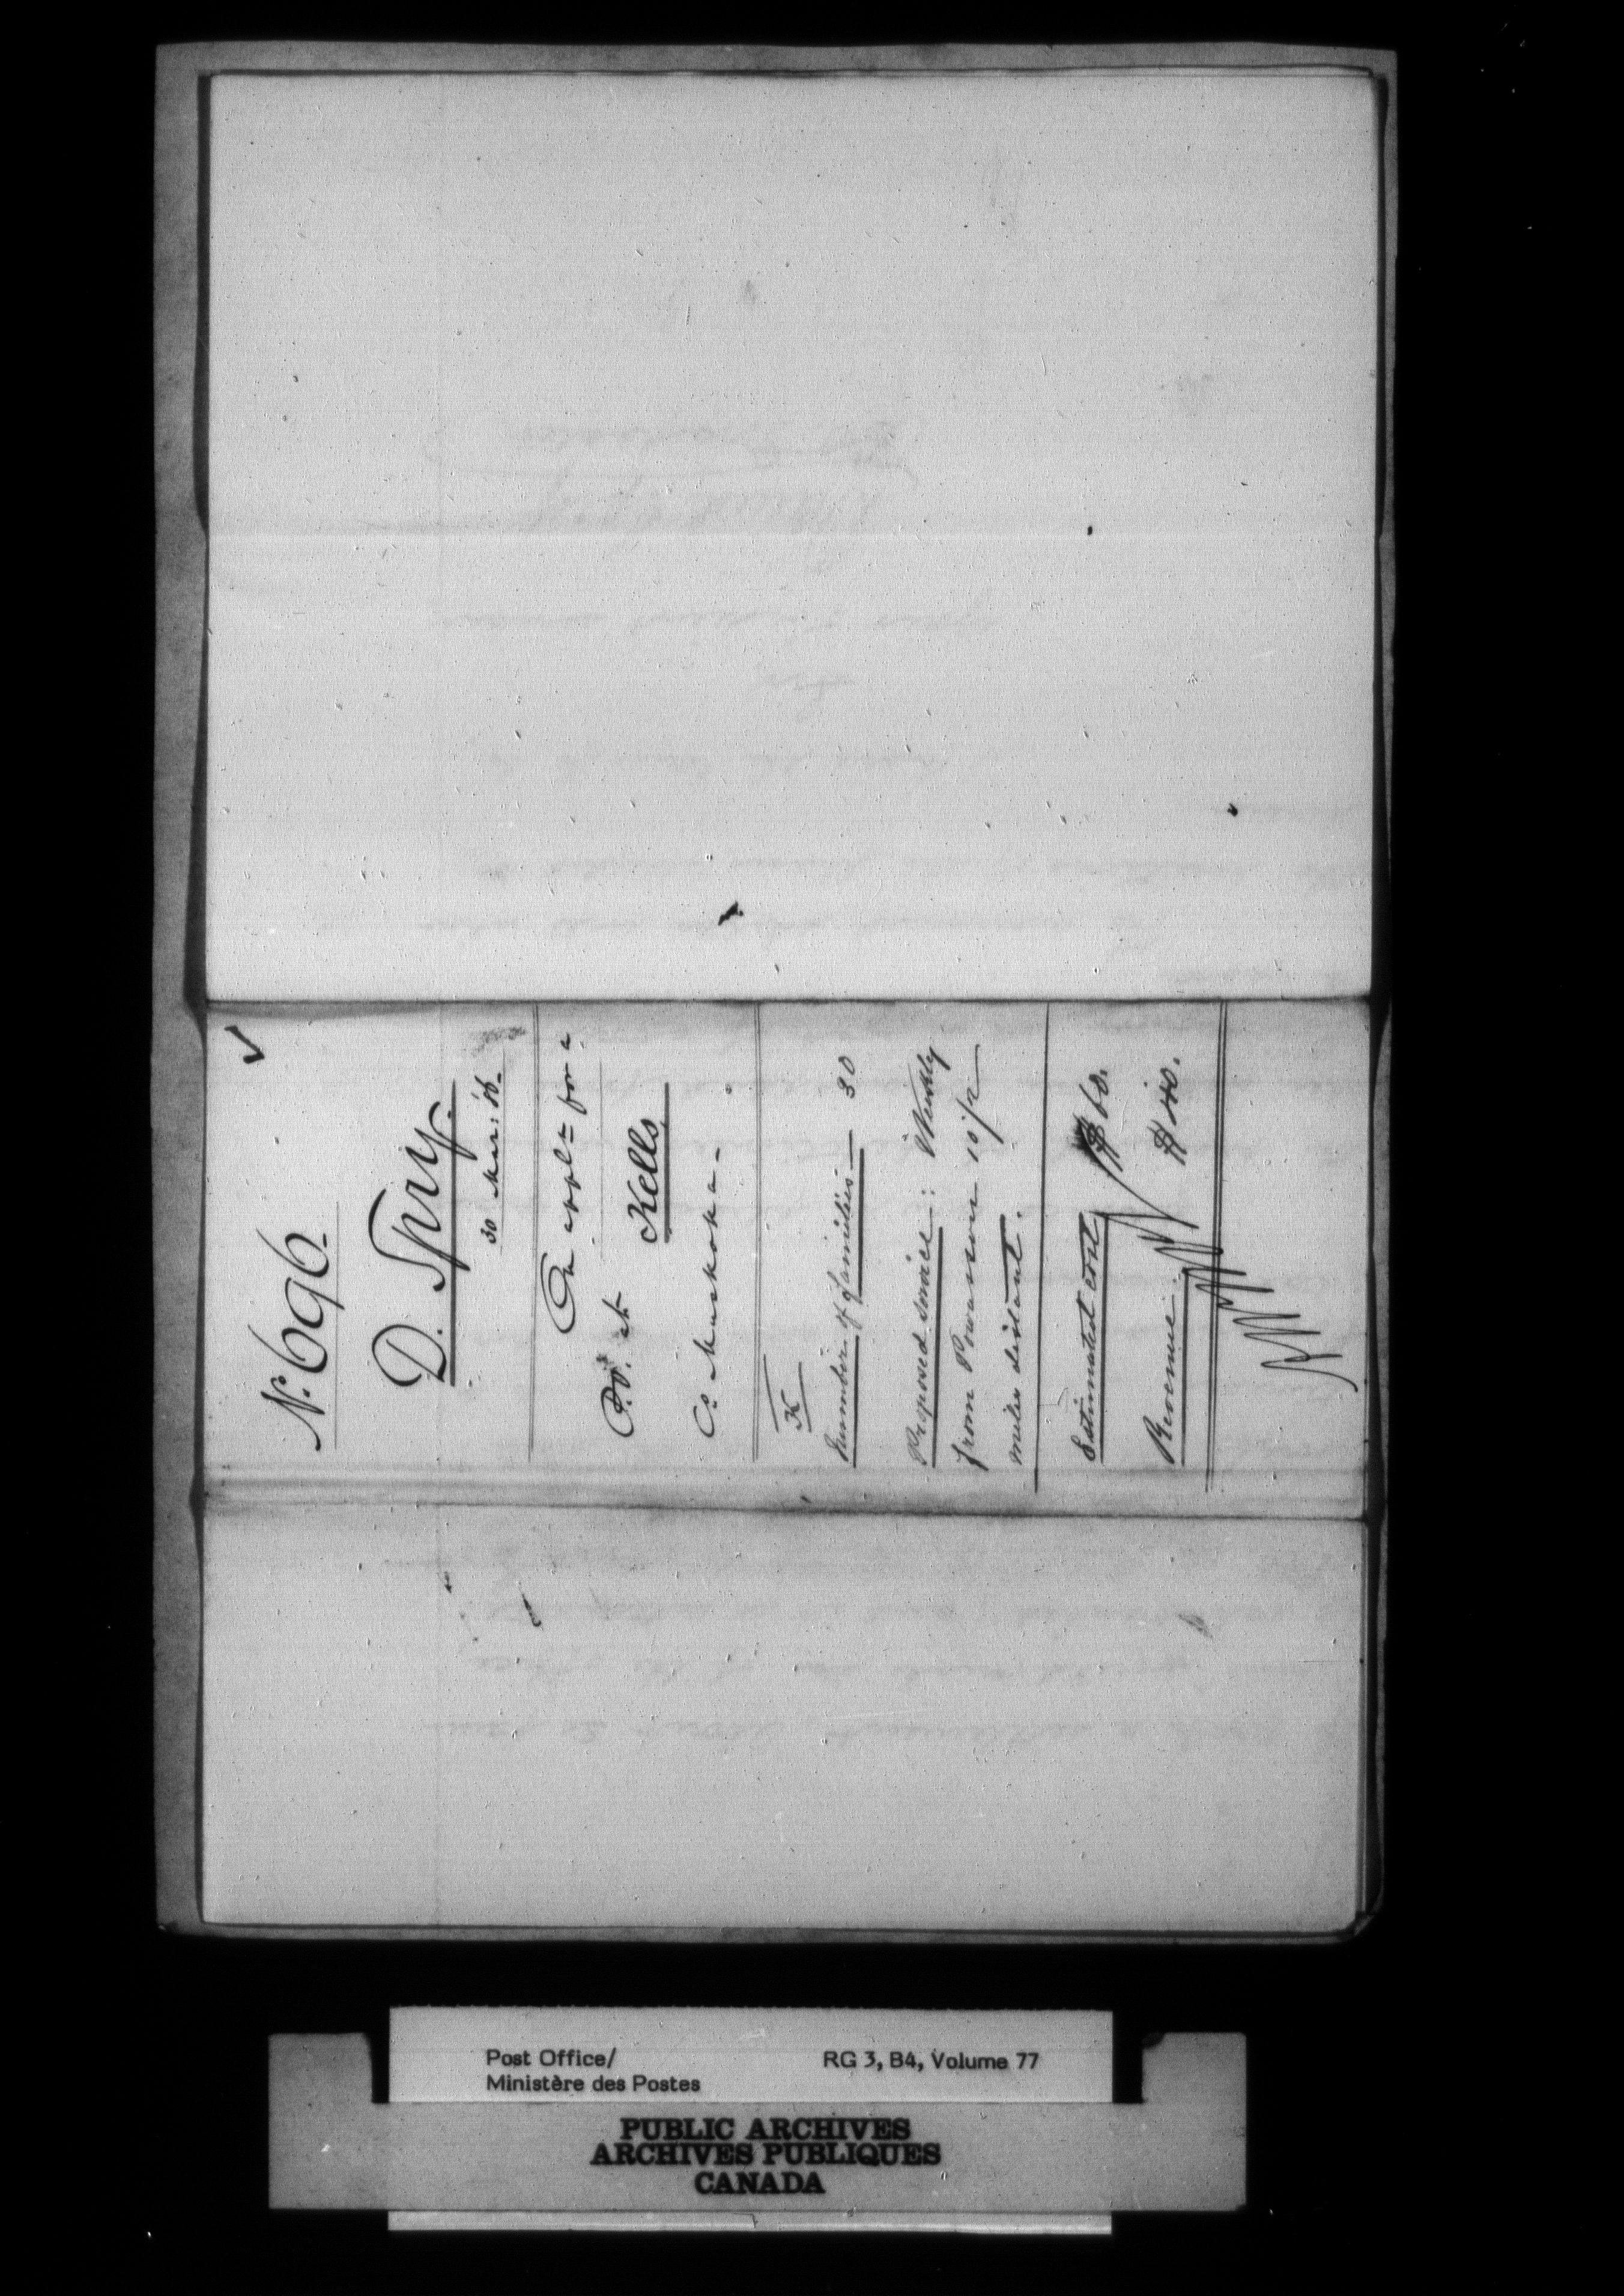 ✓
No. 696-
D. Spry.
30 Mar: 86-
On appln for a
P.O. at
Kells
Co Muskoka-
K
Number of families — 30
Proposed service: Weekly
from Powassan 10½
miles distant.
Estimated cost $60.
Revenue: $40.
Post Office/
Ministère des Postes
RG 3, B4, Volume 77
PUBLIC ARCHIVES
ARCHIVES PUBLIQUES
CANADA